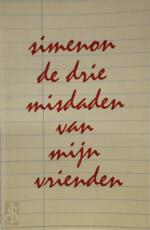 simenon
de drie
misdaden
van
mijn
vrienden